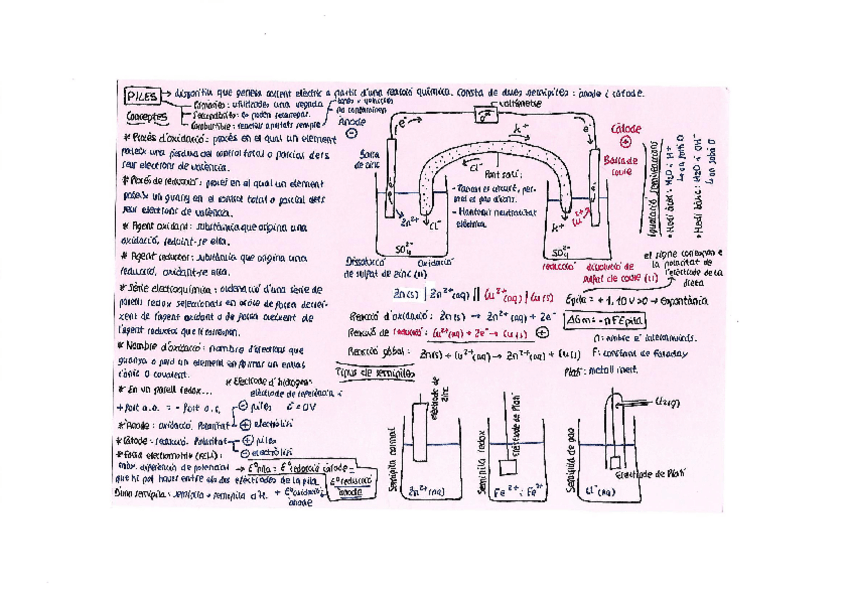 PILES → dispositiu que genera corrent elèctric a partir d'una reacció química. Consta de dues semipiles: ànode i càtode.
Conceptes
Primàries: utilitzades una vegada
Secundàries: es poden recarregar.
Combustible: reactius aportats sempre
no contaminen
* Procés d'oxidació: procés en el qual un element
pateix una pèrdua del control total o parcial dels
seus electrons de valència.
* Procés de reducció: procés en el qual un element
pateix un guany en el control total o parcial dels
seus electrons de valència.
* Agent oxidant: substància que origina una
oxidació, reduint-se ella.
* Agent reductor: substància que origina una
reducció, oxidant-se ella.
* Sèrie electroquímica: ordenació d'una sèrie de
parells redox seleccionats en ordre de força decrei-
xent de l'agent oxidant o de força creixent de
l'agent reductor que li correspon.
* Nombre d'oxidació: nombre d'electrons que
guanya o perd un element en formar un enllaç
iònic o covalent.
* En un parell redox...
+ fort a.o. = - fort a.r.
* Elèctrode d'hidrogen:
elèctrode de referència
E = 0V
* Ànode: oxidació. Polaritat
⊖ piles
⊕ electròlisi
* Càtode: reducció. Polaritat
⊕ piles
⊖ electròlisi
* Força electromotriu (FEM):
màx. diferència de potencial
que hi pot haver entre els dos elèctrodes de la pila.
D'una semipila: semipila + semipila d'H.
→ E°pila = E° reducció càtode -
E° reducció
ànode
+ E° oxidació
ànode
Ànode
⊖
voltímetre
e⁻
e⁻
K⁺
Cl⁻
Càtode
⊕
Barra
de zinc
Barra de
coure
Pont salí:
- Tancar el circuit, per-
met el pas d'ions.
- Mantenir neutralitat
elèctrica
Zn²⁺
Cl⁻
K⁺
Cu²⁺
SO₄²⁻
SO₄²⁻
Dissolució
de sulfat de zinc (II)
Oxidació
reducció
dissolució de
sulfat de coure (II)
Igualació semireaccions
• Medi àcid: H₂O i H⁺
• Medi bàsic: H₂O i OH⁻
el signe correspon a
la polaritat de
l'elèctrode de la
dreta
Zn(s) | Zn²⁺(aq) || Cu²⁺(aq) | Cu(s)
Epila = +1,10 V > 0 → Espontània
Reacció d'oxidació: Zn(s) → Zn²⁺(aq) + 2e⁻
Reacció de reducció: Cu²⁺(aq) + 2e⁻ → Cu(s) ⊕
ΔGm = -nFEpila
Reacció global: Zn(s) + Cu²⁺(aq) → Zn²⁺(aq) + Cu(s)
n: nombre e⁻ intercanviats.
F: constant de Faraday
Platí: metall inert.
Tipus de semipiles
Semipila normal
elèctrode de
zinc
Zn²⁺(aq)
Semipila redox
elèctrode de Platí
Fe²⁺ i Fe³⁺
Semipila de gas
Cl₂(g)
Elèctrode de Platí
Cl⁻(aq)